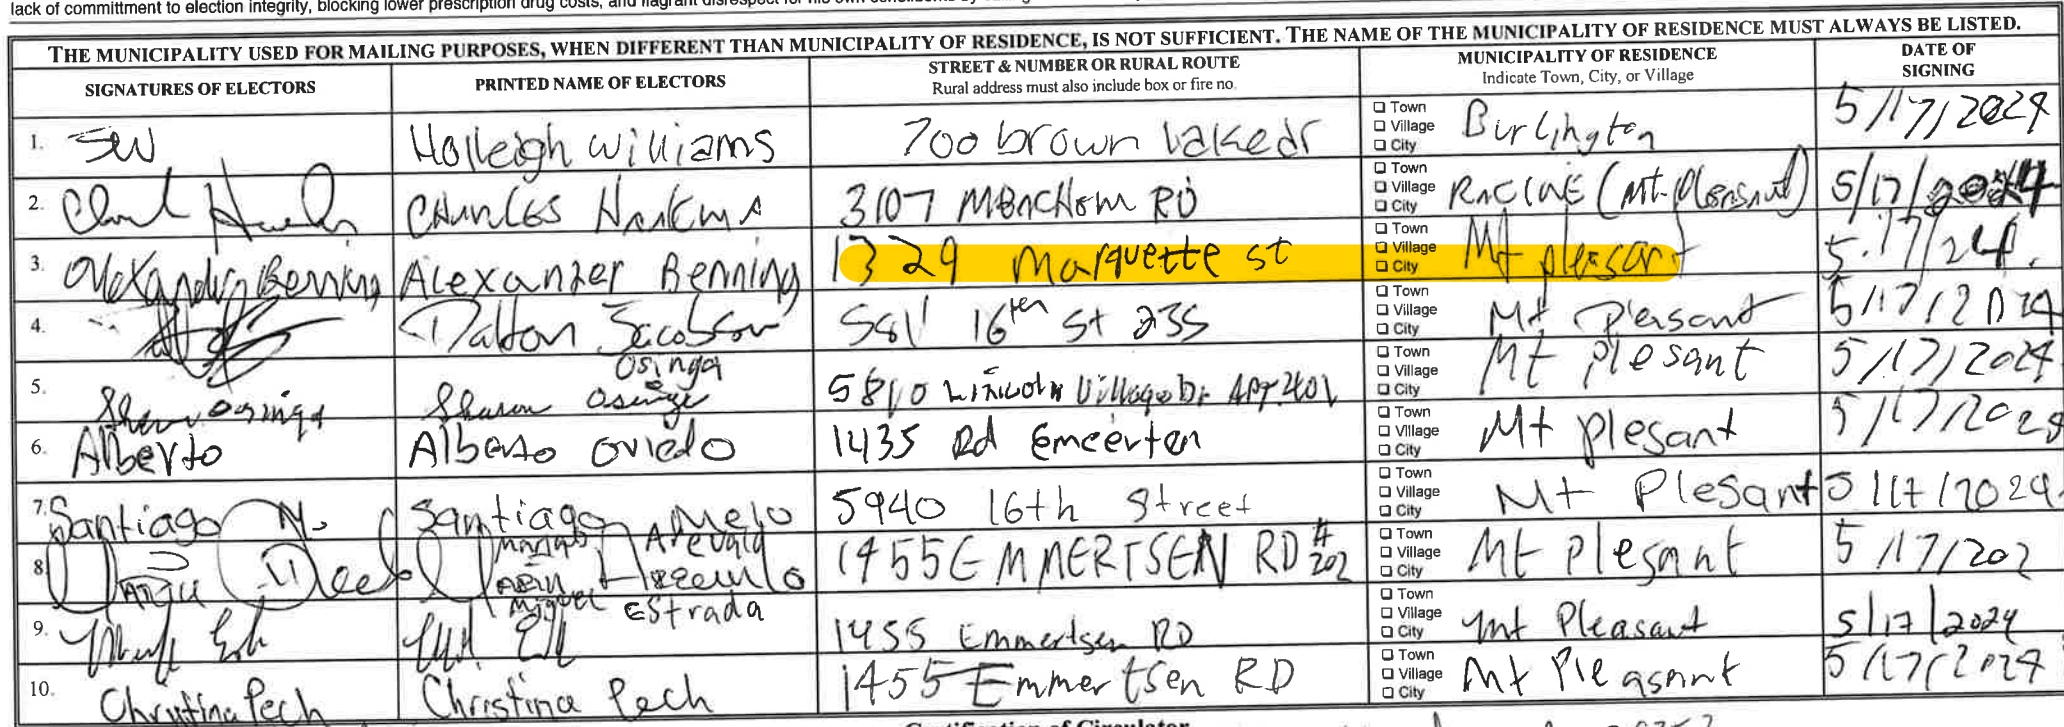 lack of committment to election integrity, blocking lower prescription drug costs, and flagrant disrespect for his own constituents by
THE MUNICIPALITY USED FOR MAILING PURPOSES, WHEN DIFFERENT THAN MUNICIPALITY OF RESIDENCE, IS NOT SUFFICIENT. THE NAME OF THE MUNICIPALITY OF RESIDENCE MUST ALWAYS BE LISTED.
SIGNATURES OF ELECTORS PRINTED NAME OF ELECTORS STREET & NUMBER OR RURAL ROUTE MUNICIPALITY OF RESIDENCE DATE OF SIGNING
Rural address must also include box or fire no. Indicate Town, City, or Village
1. SW Holleigh Williams 700 brown lake dr Town Village City Burlington 5/17/2024
2. Charles 3107 RD Town Village City RACINE (Mt. Pleasant) 5/17/2024
3. Alexander Benning Alexander Benning 1329 Marquette st Town Village City Mt pleasant 5.17/24.
4. Dalton Jacobson 5811 16th st 235 Town Village City Mt Pleasant 5/17/2024
Osinga
5. Sharon Osinga Sharon Osinga 5810 Lincoln Village Dr Apt. 401 Town Village City Mt Plesant 5/17/2024
6. Alberto Alberto Oviedo 1435 Rd Emeerten Town Village City Mt Plesant 5/17/202
7. Santiago N. Santiago Melo 5940 16th Street Town Village City Mt Plesant 5/17/2024
8. Arevalo 1455 EMMERTSEN RD # 202 Town Village City Mt Plesant 5/17/202
Miguel Estrada
9. 1455 Emmertsen RD Town Village City Mt Pleasant 5/17/2024
10. Christina Pech Christina Pech 1455 Emmertsen RD Town Village City Mt Pleasant 5/17/2024
Certification of Circulator